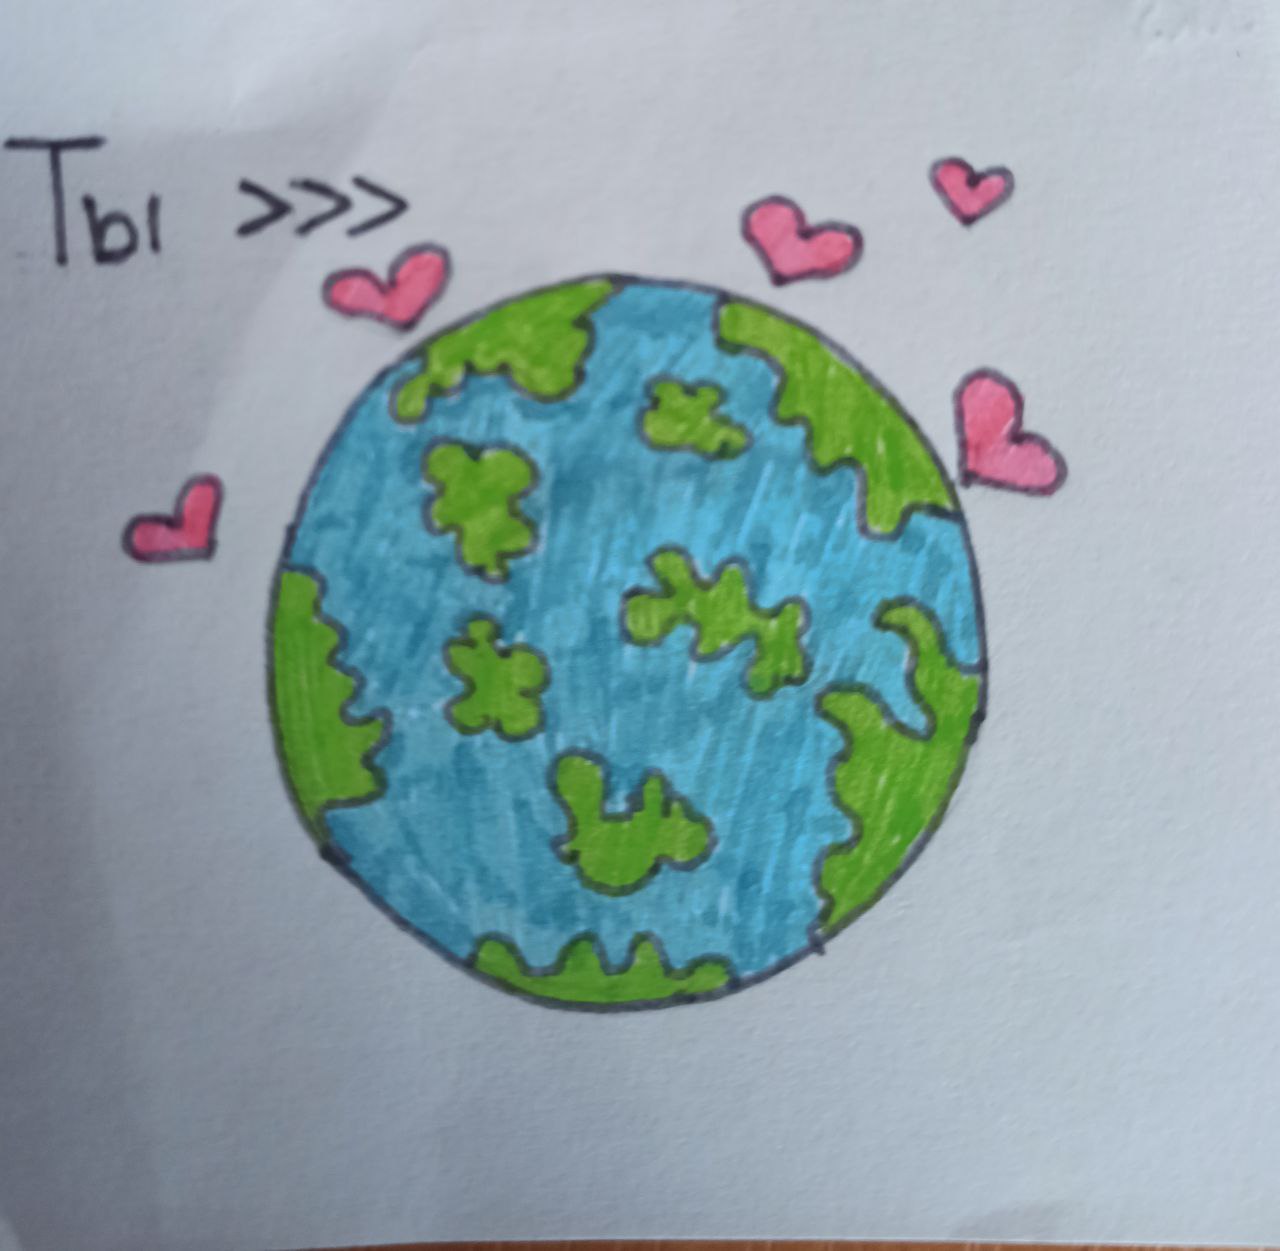 Ты >>>